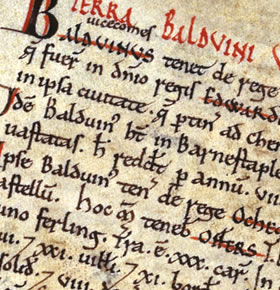 TERRA BALDUINI V
vicecomes
BALDVINVS tenet de rege
q̄ fuer̄ in dn̄io regis EDWARDI
in ipsa ciuitate. q̄ ptin̄ ad
Idē Balduin' ht̄ in Barnestaple
uastatas. h̄ redd̄t p annū. vii
Ipse Balduin' ten̄ de rege Ochen
castellū. Hoc M̄ teneb̄ OSFERS
uno ferling. Tr̄a. ē. xxx. car̄.
ui. 7 xxi. uill̄i. 7 xi. bord̄
solid̄.